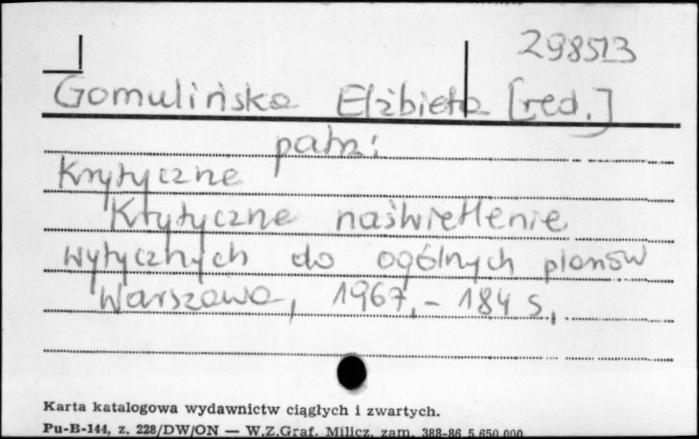 298513
Gomulińska Elżbieta [red.]
patrz:
Krytyczne
Krytyczne naświetlenie
wytycznych do ogólnych planów
Warszawa, 1967, - 184 s,
Karta katalogowa wydawnictw ciągłych i zwartych.
Pu-B-144, z. 228/DW/ON — W.Z.Graf. Milicz, zam. 388-86 5.650.000